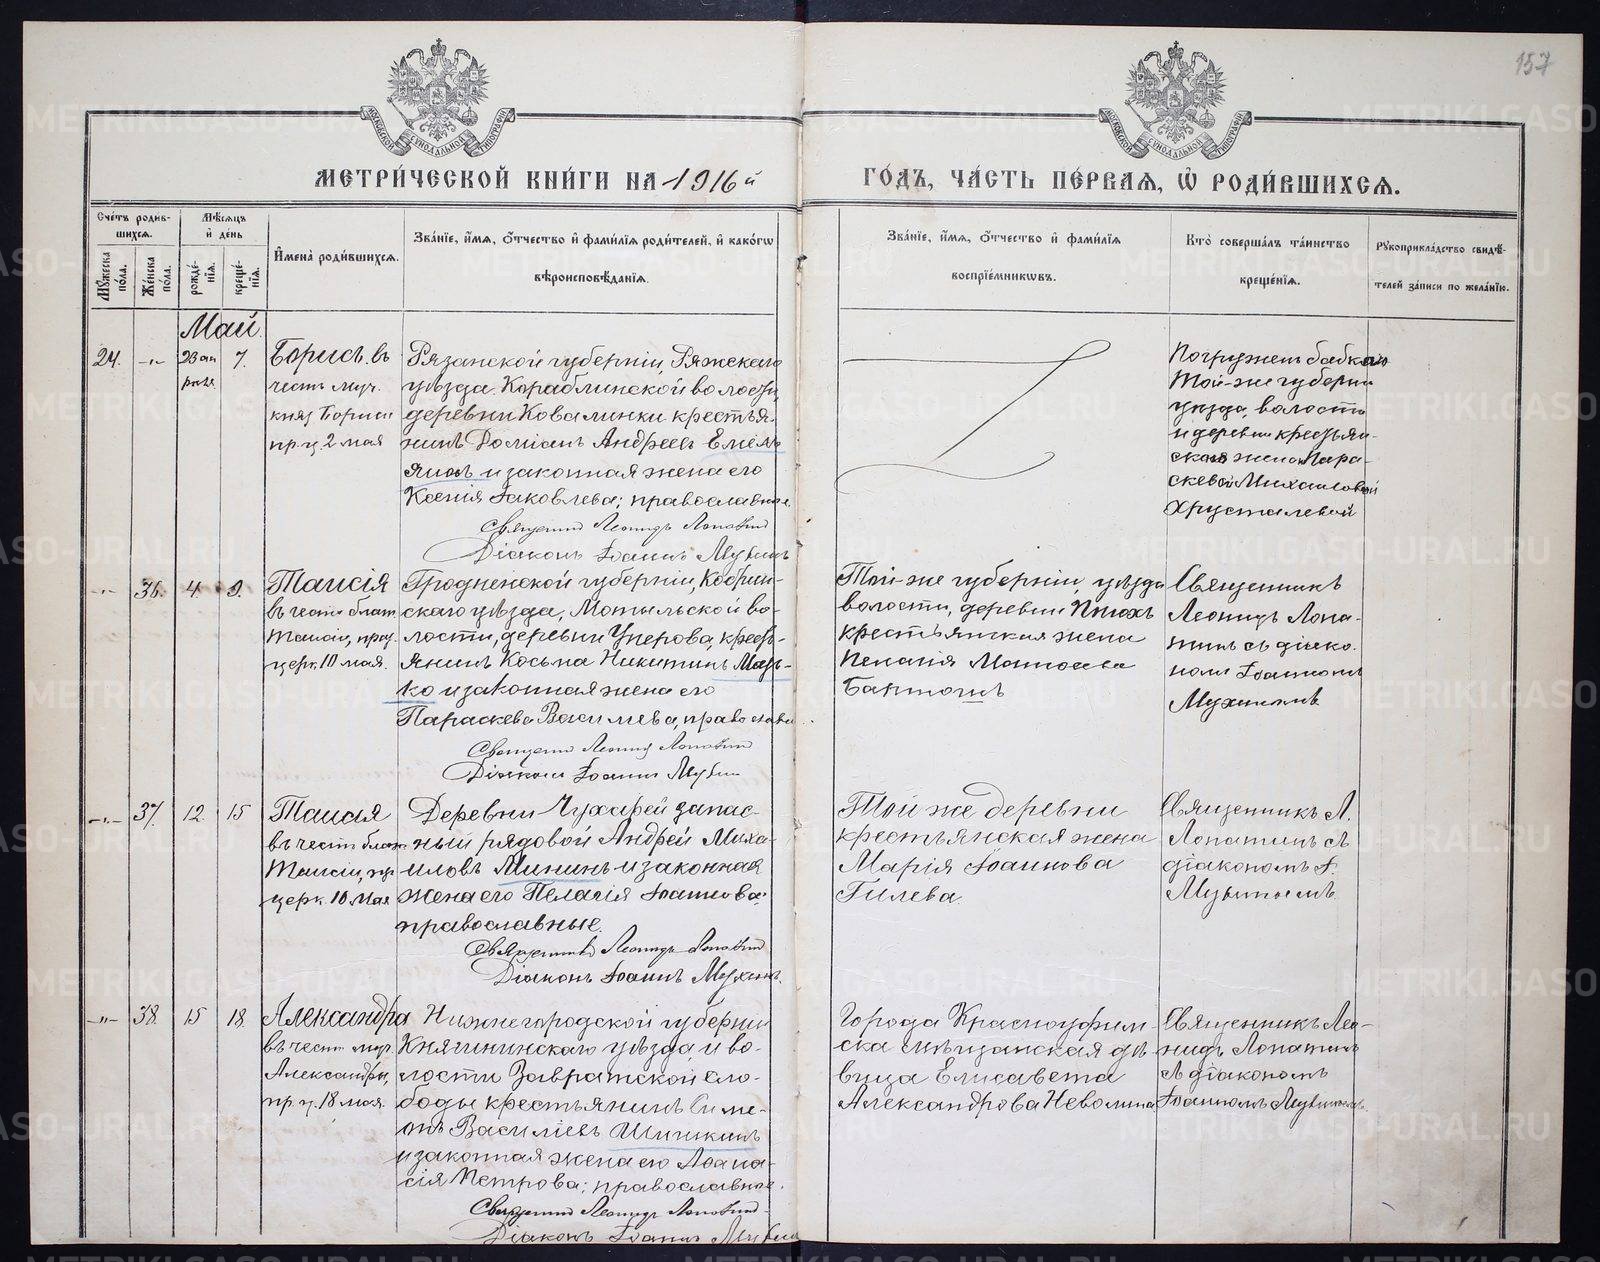 157
МЕТРИ́ЧЕСКОЙ КНИ́ГИ НА 1916й ГО́ДЪ, ЧА́СТЬ ПЕ́РВАЯ, Ѡ РОДИ́ВШИХСЯ.
Сче́тъ роди́в-
шихся.
Му́жеска по́ла.
Же́нска по́ла.
Мѣ́сяцъ
и̂ де́нь
рожде́-
нїя.
креще́-
нїя.
И̂мена̀ роди́вшихся.
Зва́нїе, и́мя, о́тчество и̂ фами́лїя роди́телей, и̂ како́гѡ
вѣроисповѣ́данїя.
Зва́нїе, и́мя, о́тчество и̂ фами́лїя
воспрїе́мниковъ.
Кто̀ соверша́лъ та́инство
креще́нїя.
Рꙋкоприкла́дство свидѣ́-
телей за́писи по жела́нїю.
Май
24.
-„-
23 ап
реля
7.
Борисъ. въ
честь муч.
княз Бориса
пр. ц. 2 мая
Рязанской губерніи, Ряжскаго
уѣзда. Кораблинской волости,
деревни Ковалинки крестья-
нинъ Доміанъ Андреевъ Емель
яновъ и законная жена его
Ксенія Іаковлева; православные.
Священникъ Леонидъ Лопатинъ
Діаконъ Іоаннъ Мухинъ
Погруженъ бабкою
Той-же губерніи
уѣзда, волости
и деревни крестьян-
скою женою Пара-
скевой Михаиловой
Хрусталевой
-„-
36.
4.
9.
Таисія
въ честь блаж.
Таисіи, праз.
церк. 10 мая.
Гродненской губерніи, Кобрин-
скаго уѣзда, Мотыльской во-
лости, деревни Уперова, кресть-
янинъ Косьма Никитинъ Маць-
ко и законная жена его
Параскева Васильева, правосла
Священникъ Леонидъ Лопатинъ
Діаконъ Іоаннъ Мухин
Той-же губерніи, уѣзда
волости, деревни
крестьянская жена
Пелагія Матѳеева
Священникъ
Леонидъ Лопа-
тинъ съ діако-
номъ Іоанномъ
Мухинымъ
-„-
37.
12.
15
Таисія
въ честь блаж.
Таисіи, пр.
церк. 10 мая
Деревни Чухарей запас-
ный рядовой Андрей Миха-
иловъ Мининъ и законная
жена его Пелагія Іоаннова;
православные.
Священникъ Леонидъ Лопатин
Діаконъ Іоаннъ Мухинъ.
Той же деревни
крестьянская жена
Марія Іоаннова
Гилева.
Священникъ Л.
Лопатинъ съ
діакономъ І.
Мухинымъ.
-„-
38.
15
18.
Александра
въ честь муч.
Александры,
пр. ц. 18 мая.
Нижнегородской губерніи
Княгининскаго уѣзда и во-
лости Завратской сло-
боды крестьянинъ Симе-
онъ Василіевъ Шишкинъ
и законная жена его Аѳана-
сія Петрова; православные.
Священникъ Леонидъ Лопатинъ
Діаконъ Іоаннъ Мухин
Города Красноуфим-
ска мѣщанская дѣ-
вица Елисавета
Александрова Неволина
Священникъ Лео-
нидъ Лопатинъ
съ діакономъ
Іоанномъ Мухинымъ.
METRIKI.GASO-URAL.RU